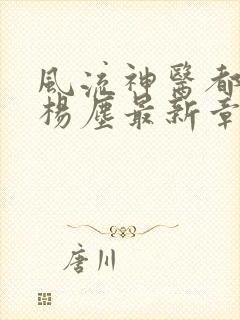 風流神醫都
楊塵最新章
唐川